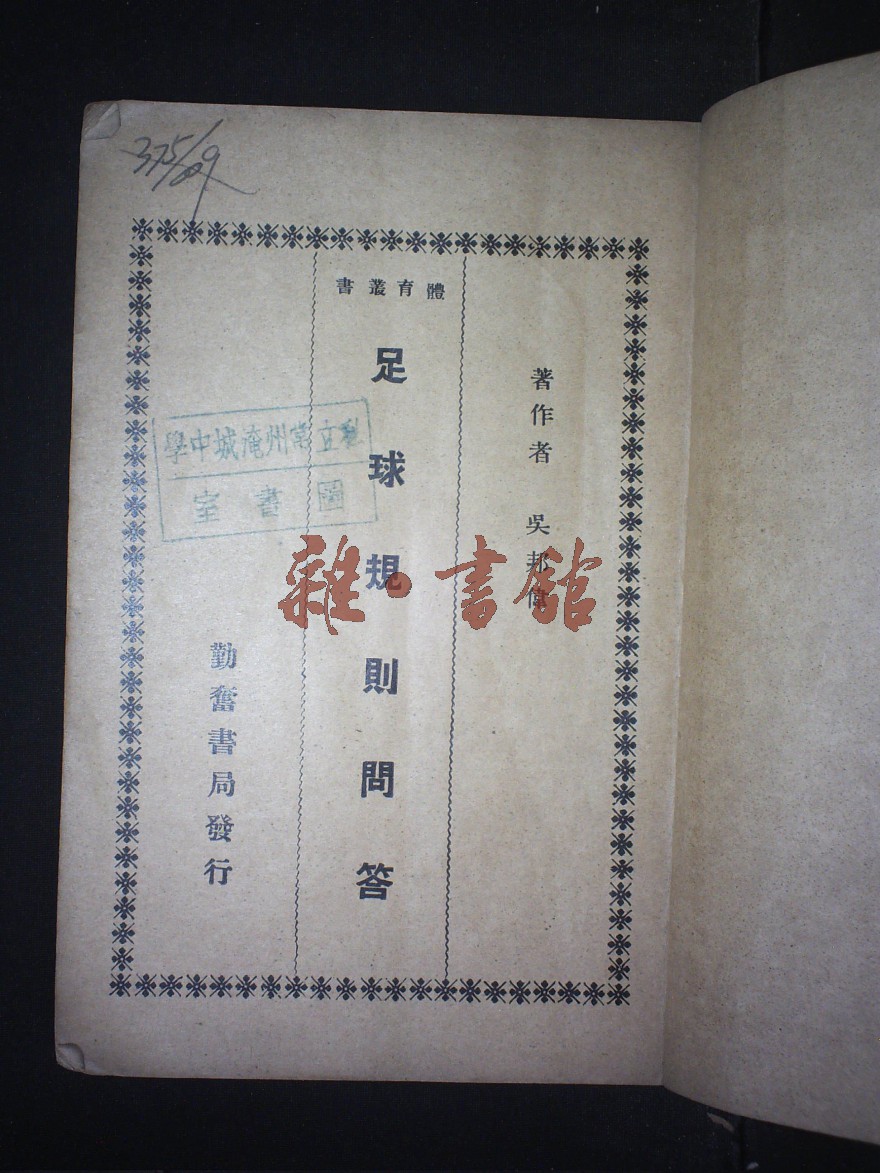 375/89
體育叢書
著作者 吳邦偉
足球規則問答
勤奮書局發行
私立常州淹城中學
圖書室
雜·書館